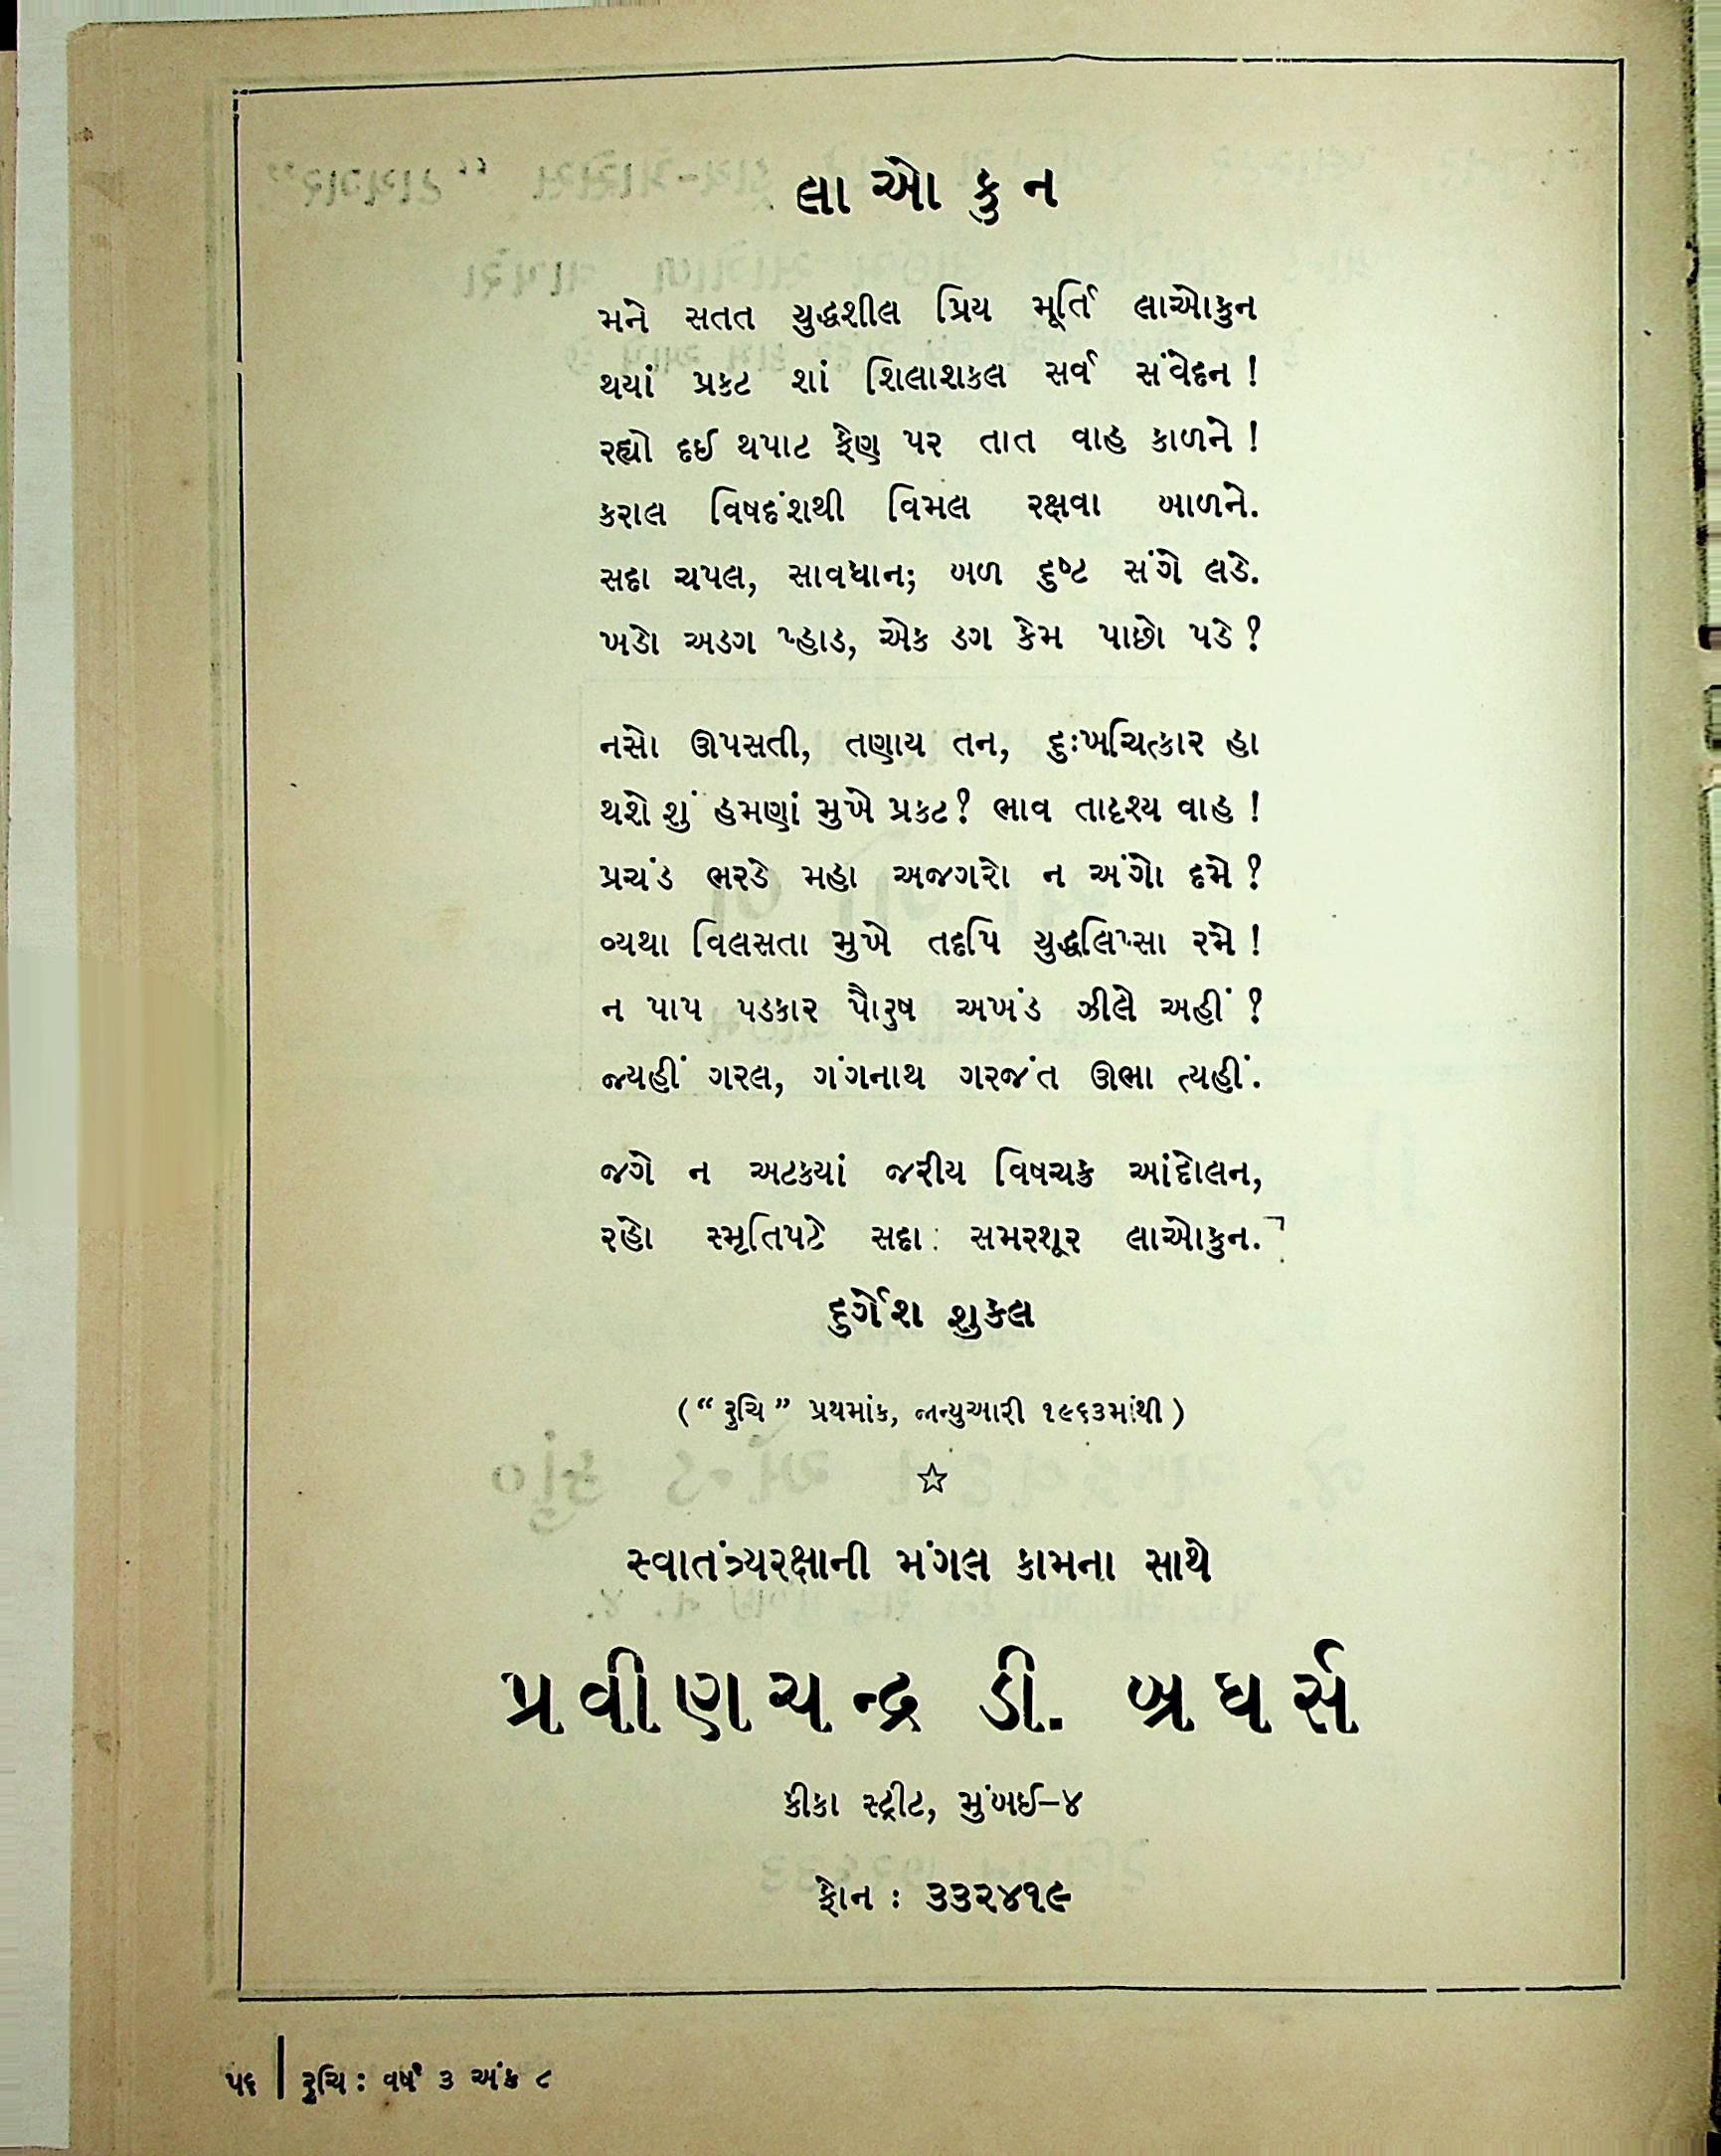 લાઓકુન
મને સતત યુદ્ધશીલ પ્રિય મૂર્તિ લાઓકુન
થયાં પ્રકટ શાં શિલાશકલ સર્વ સંવેદન !
રહ્યો દઈ થપાટ ફેણ પર તાત વાહ કાળને !
કરાલ વિષદંશથી વિમલ રક્ષવા બાળને.
સદા ચપલ, સાવધાન; બળ દુષ્ટ સંગે લડે.
ખડો અડગ પ્હાડ, એક ડગ કેમ પાછો પડે ?
નસો ઊપસતી, તણાય તન, દુઃખચિત્કાર હા
થશે શું હમણાં મુખે પ્રકટ? ભાવ તાદૃશ્ય વાહ !
પ્રચંડ ભરડે મહા અજગરો ન અંગો દમે ?
વ્યથા વિલસતા મુખે તદપિ યુદ્ધલિપ્સા રમે !
ન પાપ પડકાર પૌરુષ અખંડ ઝીલે અહીં ?
જ્યહીં ગરલ, ગંગનાથ ગરજંત ઊભા ત્યહીં.
જગે ન અટક્યાં જરીય વિષચક્ર આંદોલન,
રહો સ્મૃતિપટે સદા સમરશૂર લાઓકુન.
દુર્ગેશ શુકલ
( “ રુચિ ” પ્રથમાંક, જાન્યુઆરી ૧૯૬૩માંથી )
☆
સ્વાતંત્ર્યરક્ષાની મંગલ કામના સાથે
પ્રવીણચન્દ્ર ડી. બ્રધર્સ
કીકા સ્ટ્રીટ, મુંબઈ–૪
ફોન : ૩૩૨૪૧૯
૫૬ | રુચિ : વર્ષ ૩ અંક ૮